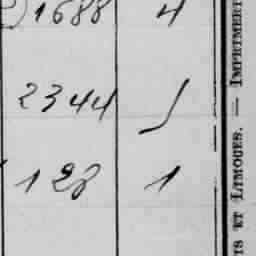 1688 4
2344
128 1
IS ET LIMOGES. — IMPRIMERI